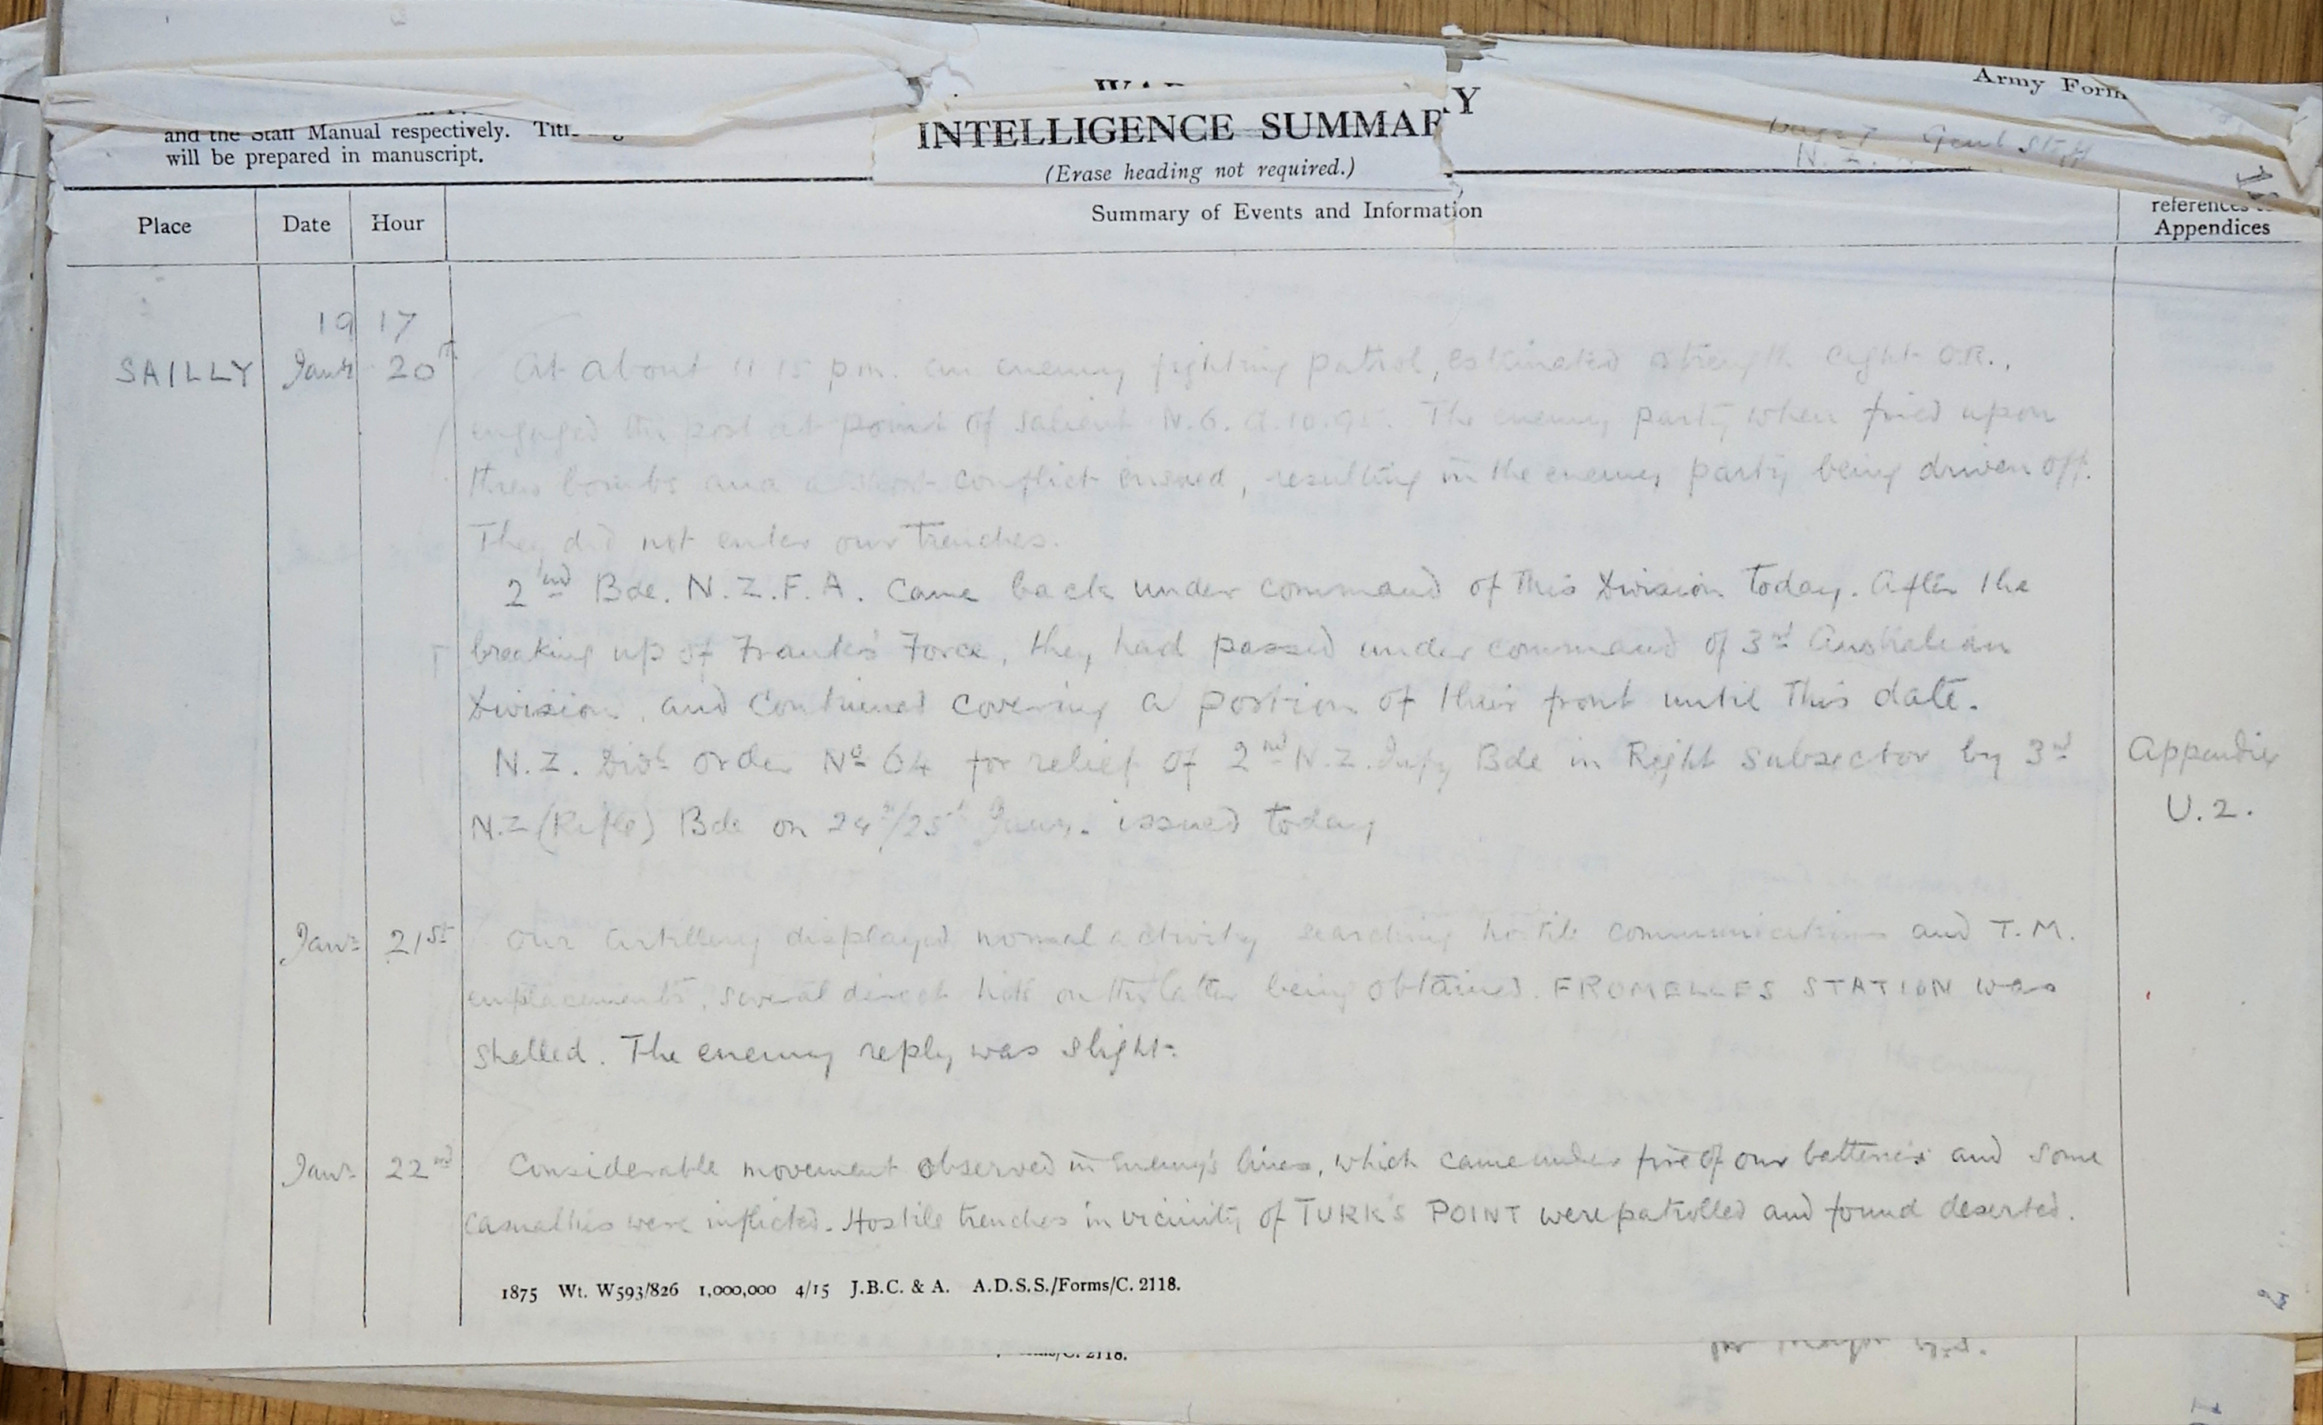 Army Form
and the Staff Manual respectively.
will be prepared in manuscript.
INTELLIGENCE SUMMARY
(Erase heading not required.)
Genl Staff
Place Date Hour Summary of Events and Information references
Appendices
1917
SAILLY Jany 20th At about 11 15 p.m. an enemy fighting patrol, estimated strength eight O.R.,
engaged the post at point of Salient N.6.d.10.95. The enemy party when fired upon
threw bombs and a short conflict ensued, resulting in the enemy party being driven off.
They did not enter our Trenches.
2nd Bde. N.Z.F.A. Came back under command of this Division today. After the
breaking up of Franks' Force, they had passed under command of 3rd Australian
Division, and continued covering a portion of their front until this date.
N.Z. Divl order No 64 for relief of 2nd N.Z. Infy Bde in Right Subsector by 3rd Appendix
N.Z (Rifle) Bde on 24th/25th Jany. issued today U.2.
Jany 21st Our Artillery displayed normal activity searching hostile communications and T.M.
emplacements, several direct hits on the latter being obtained. FROMELLES STATION was
shelled. The enemy reply was slight.
Jany 22nd Considerable movement observed in Enemy's lines, which came under fire of our batteries and some
casualties were inflicted. Hostile trenches in vicinity of TURK'S POINT were patrolled and found deserted.
1875 Wt. W593/826 1,000,000 4/15 J.B.C. & A. A.D.S.S./Forms/C. 2118.
/C. 2118.